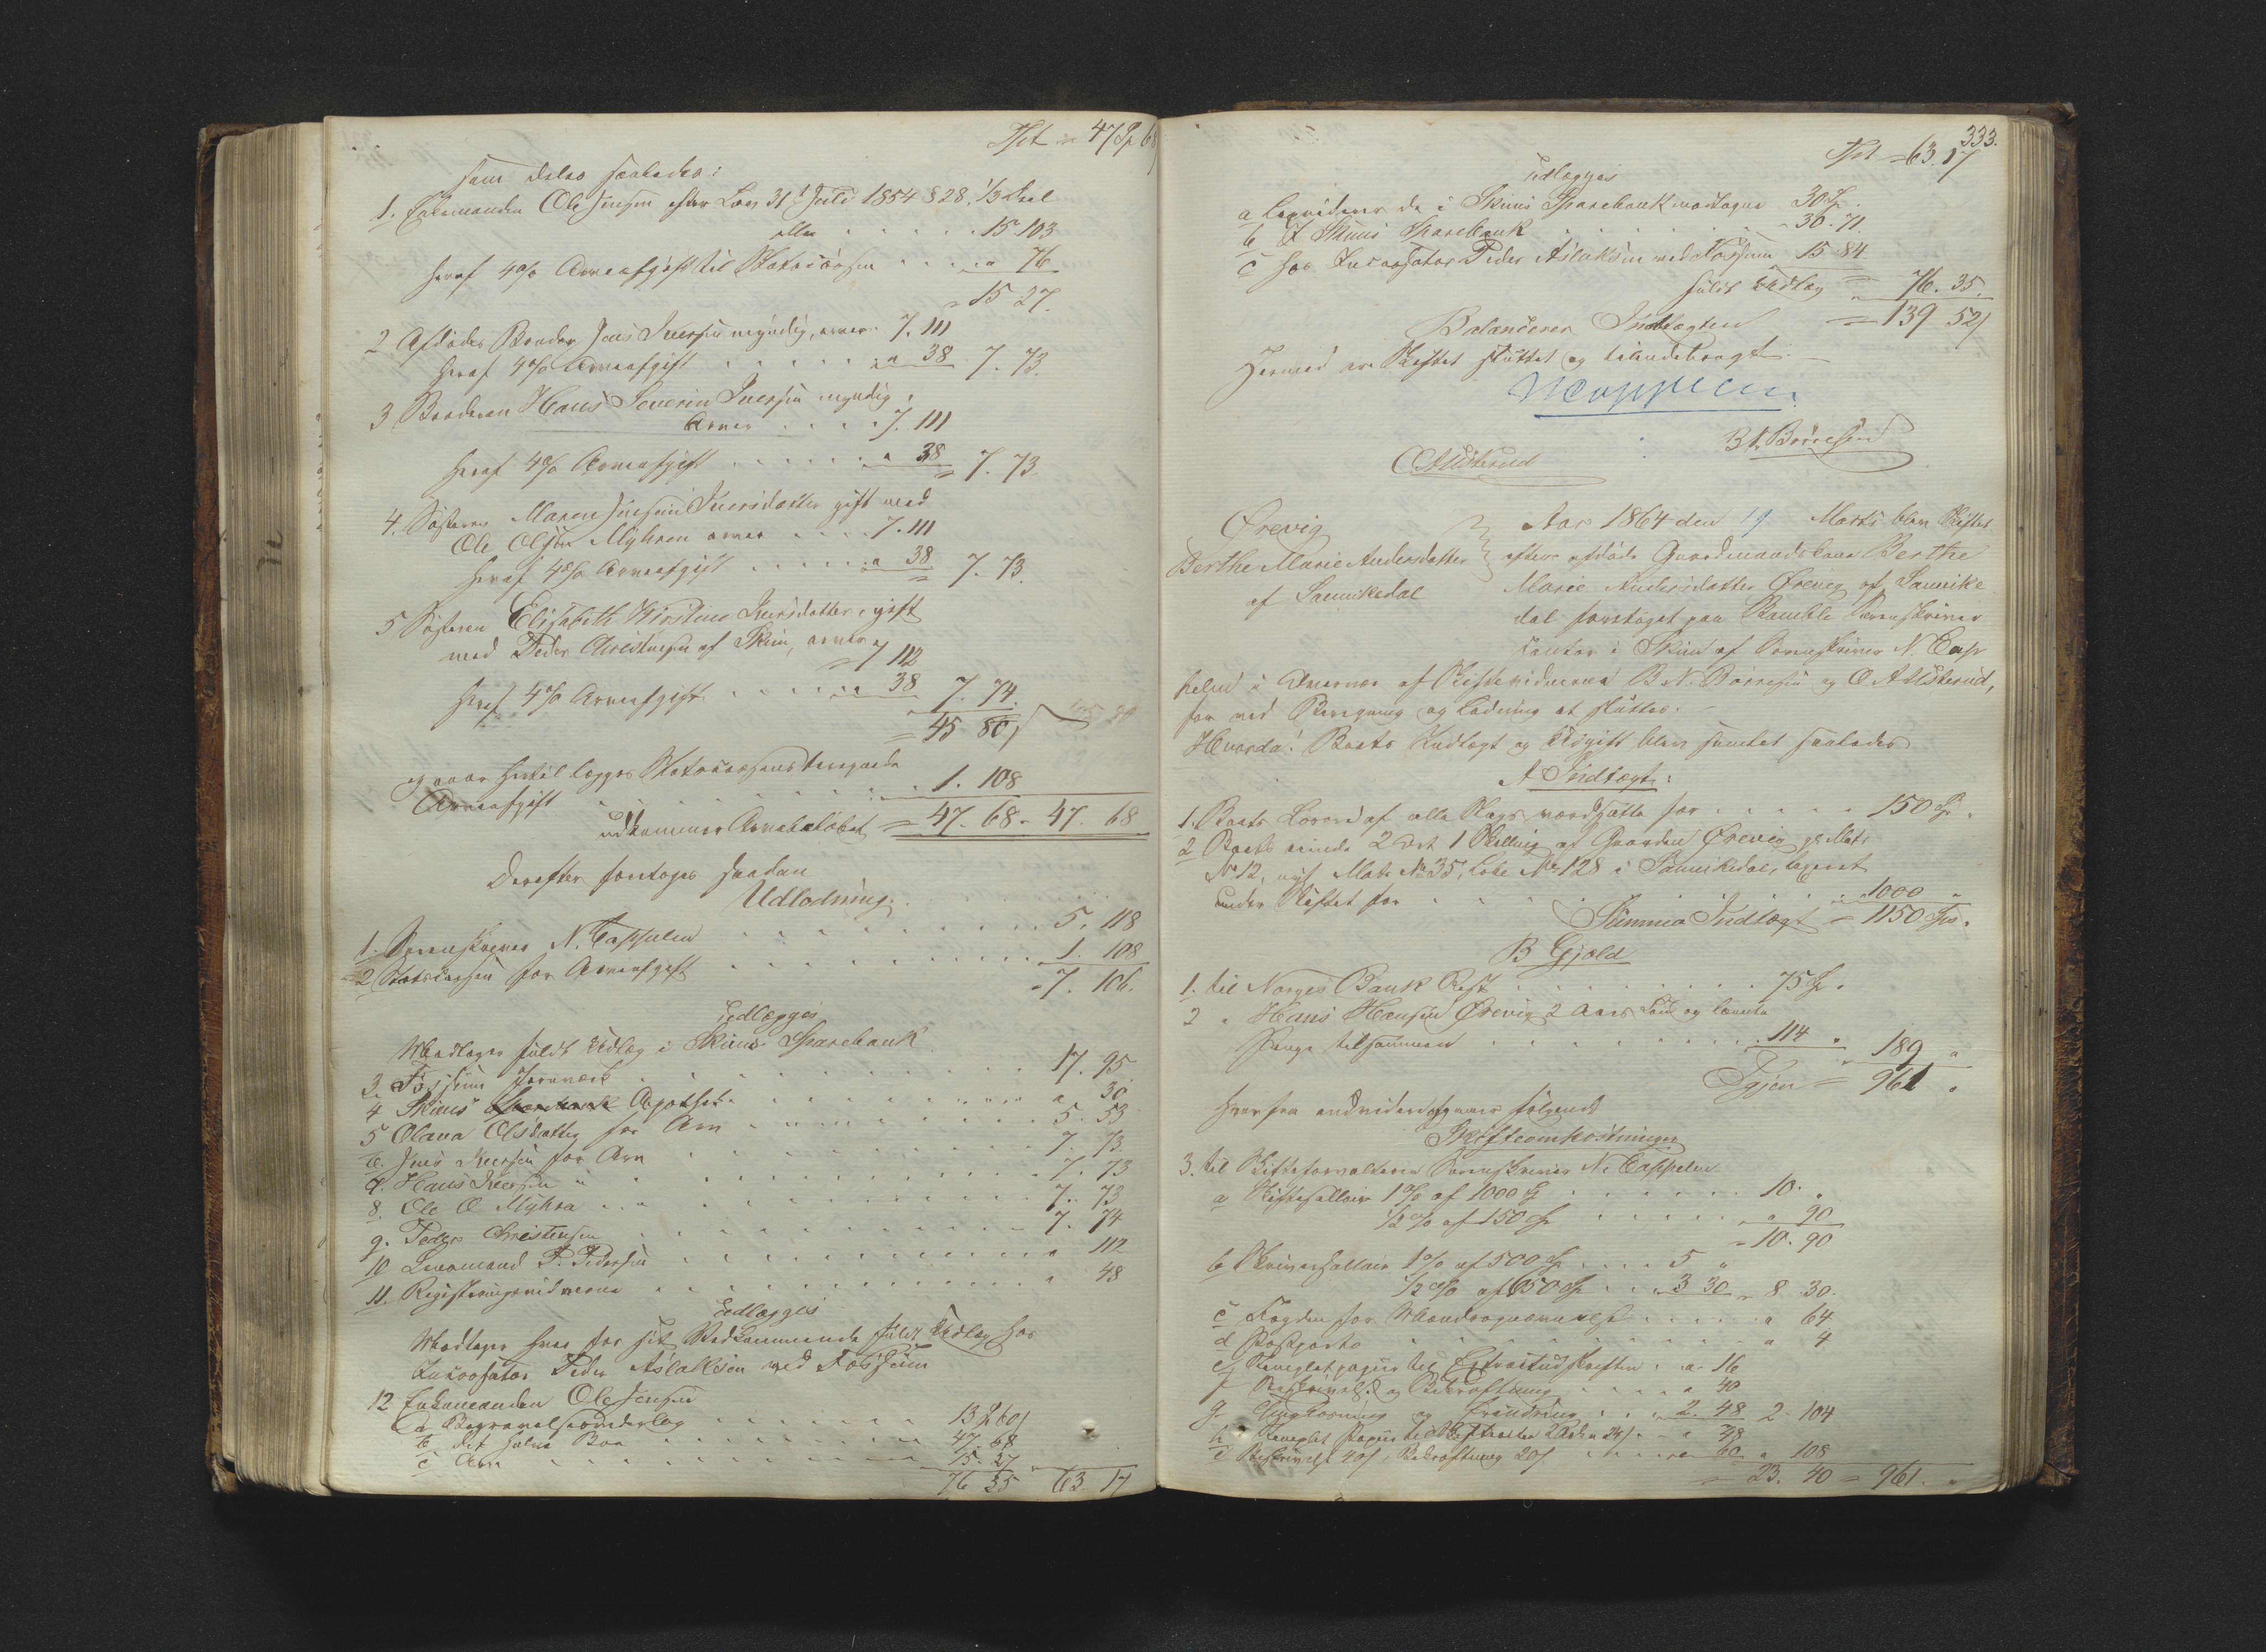 Tpt = 47 Sp 68
som deles saaledes:
1. Enkemanden Ole Jensen efter Lov 31te Juli 1854 § 28, 1/3 Deel
eller . . . . . 15. 103
heraf 4% Arveafgift til Statscassen . . . . " 76
= 15 27.
2 Afdødes Broder Jens Iversen myndig, arver 7. 111
heraf 4% Arveafgift . . . . . " 38 7. 73.
3 Broderen Hans Severin Iversen myndig,
Arver . . . . 7. 111
heraf 4% Arveafgift . . . . . " 38 = 7. 73.
4. Søsteren Maren Iversdatter gift med
Ole Olsen Myhren arver . . . . 7. 111
heraf 4% Arveafgift . . . . . " 38 = 7. 73.
5 Søsteren Elisabeth Kirstine Iversdatter, gift
med Peder Christensen af Skien, arver
= 7 112
heraf 4% Arveafgift . . . . . " 38 7. 74.
= 45 80
og naar hertil lægges Statscassens beregnede
Arveafgift . . . . . . . . 1. 108
udkommer Arvebeløbet = 47. 68 = 47. 68
Derefter foretoges saadan
Udlodning:
1. Sorenskriver N. Cappelen . . . . . . . . 5. 118
2 Statscassen for Arveafgift . . . . . . . . 1. 108
= 7. 106.
Udlægges
Modtager fuldt Udlæg i Skiens Sparebank
3. Fossum Jernværk . . . . . . . . 17. 95
4 Skiens Apothek . . . . . . . . " 30
5 Olava Olsdatter for Arv . . . . . . . . 5. 53
6. Jens Iversen for Arv . . . . . . . . 7. 73
7. Hans Iversen " . . . . . . . . 7. 73
8. Ole O Myhra . . " . . . . . . . . 7. 73
9. Peder Christensen . . . . . . . . 7. 74
10 Lensmand P. Pedersen . . . . . . . . " 112
11. Registreringsvidnerne . . . . . . . . " 48
Udlægges
Modtager hver for sit Vedkommende fuldt Udlæg hos
Incassator Peder Aslaksen ved Fossum
12 Enkemanden Ole Jensen
a Begravelsesomkostning . . . . . . 13 Sp 60
b det halve Boe . . . . . . 47. 68
c Arv . . . . . . 15. 27
76 35 63 17
333.
Tpt = 63. 17
Udlægges
a Creditorer de i Skiens Sparebank modtagne 30 Sp.
b I Skiens Sparebank . . . . . 30. 71
c hos Incassator Peder Aslaksen ved Fossum 15 84
fuldt Udlæg = 76. 35.
Balancerer Indtægten = 139 52
Hermed er Skiftet sluttet og tilendebragt. —
NCappelen.
B N Børresen
OAUlsterud
Ørevig
Berthe Marie Andersdatter
af Sannikedal
Aar 1864 den 19 Marts blev Skiftet
efter afdøde Gaardmandskone Berthe
Marie Andersdatter Ørevig af Sannike
dal foretaget paa Bamble Sorenskriver
contor i Skien af Sorenskriver N. Cap
pelen i Overvær af Skiftevidnerne B N. Børresen og O A Ulsterud,
for ved Beregning og Lodning at sluttes. —
Hvorda: Boets Indtægt og Udgift blev samlet saaledes
A Indtægt:
1. Boets Løsøre af alle Slags værdsatte for . . . . . 150 Sp.
2 Boets eiende 2 Ort 1 Skilling af Gaarden Ørevig gl. Matr.
No 12, nyt Matr. No 35, Løbe No 128 i Sannikedal, taxeret
under Skiftet for . . . . . . 1000 "
Summa Indtægt = 1150 Sp.
B Gjæld
1. til Norges Bank Rest . . . . . . . 75 Sp.
2 " Hans Hansen Ørevig 2 Aars Løn og laante
Penge tilsammen . . . . . . . . 114 " 189 "
Igjen = 961 "
hvorfra endvidere afgaaer følgende
Skifteomkostninger
3. til Skifteforvalteren Sorenskriver N. Cappelen
a Skiftesallair 1% af 1000 Sp . . . . . . 10. "
1/2% af 150 Sp . . . . . " 90
= 10. 90
b Skriversallair 1% af 500 Sp . . . . 5 "
1/2% af 650 Sp . . . 3 30 = 8 30.
c Fogden for Mændsopnævnelse . . . . . " 64
d Postporto . . . . . . . " 4
e Stemplet papir til Extraitudskriften " 16
f Beskrivelse og Bekræftning . . . . " 40
g. Thinglæsning og Erindring . . . 2. 48 2. 104
h Stemplet Papir til Skiftebrevet 2 Ark a 24 s. " 48
i Beskrivelse 40 s, Bekræftning 20 s . . . . " 60 " 108
= 23. 40 = 961. "